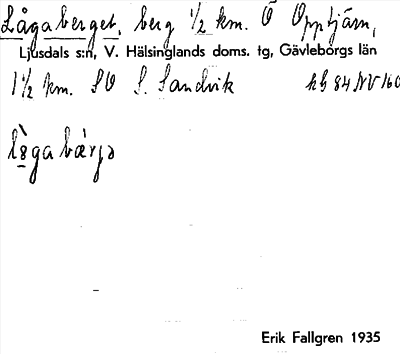 Lågaberget, berg 1/2 km. Ö Opptjärn,
Ljusdals s:n, V. Hälsinglands doms. tg, Gävleborgs län
1 1/2 km. SO S. Sandvik kb 84 NV 160
Erik Fallgren 1935